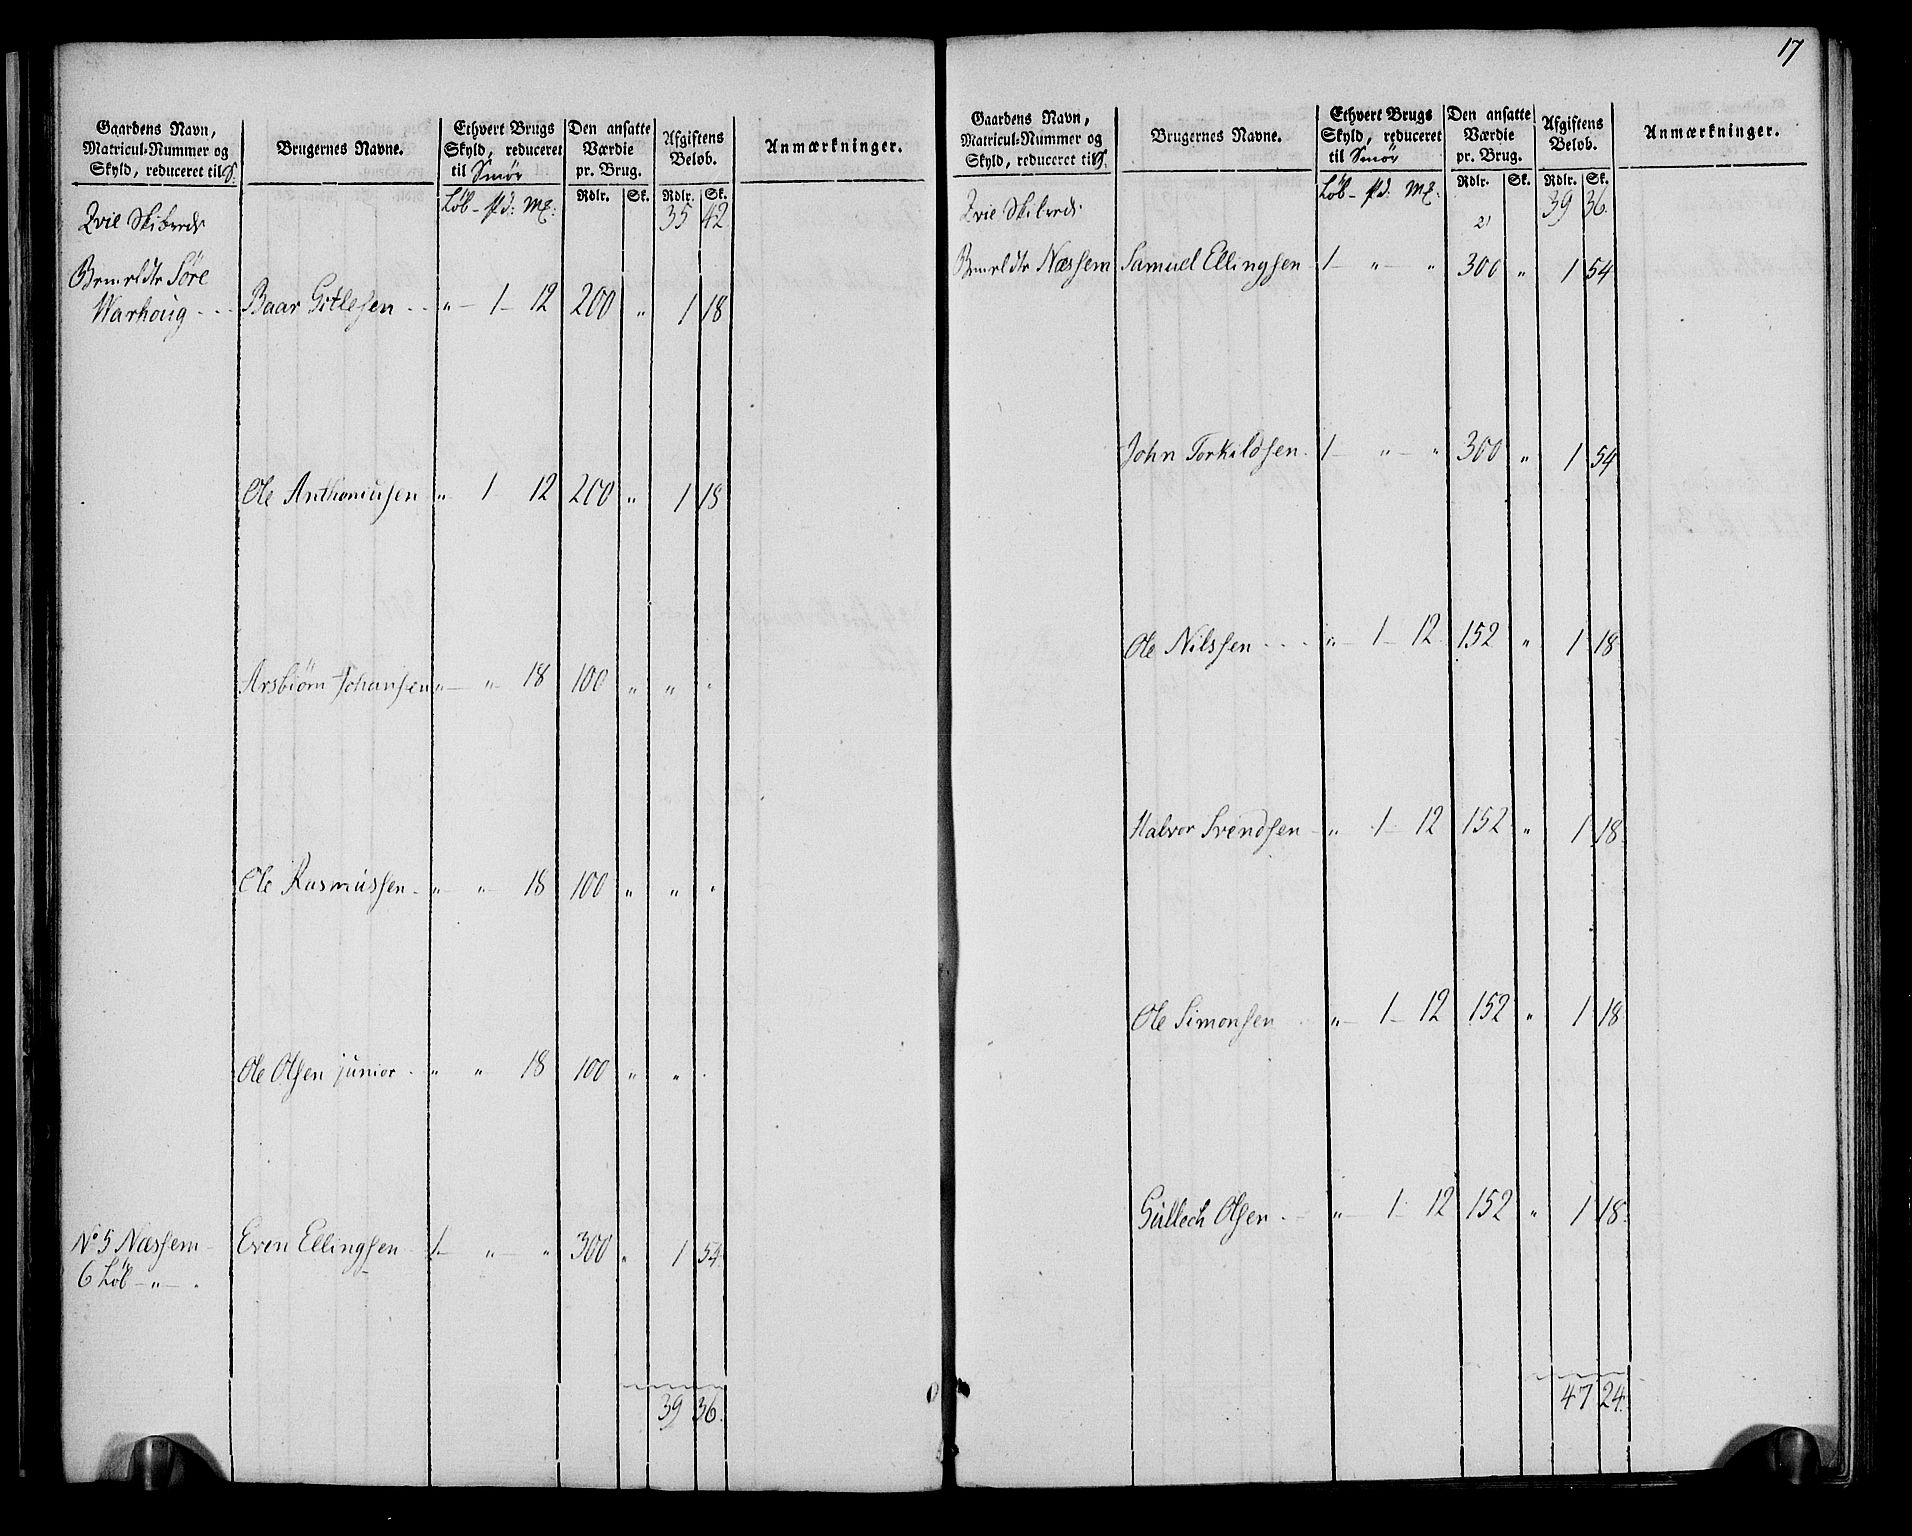 Gaardens Navn,
Matricul-Nummer og
Skyld, reduceret til S.
Brugernes Navne.
Ethvert Brugs
Skyld, reduceret
til Smör
Den ansatte
Værdie
pr. Brug.
Afgiftens
Beløb.
Anmærkninger.
Löb - pd: Mk:
Rdlr. Sk. Rdlr. Sk.
Qvie Skibreds 35 42
Søre
Warhoug - - - Baar Gitlesen - - " - 1 - 12 200 " 1 18
Ole Anthoniusen " - 1 - 12 200 " 1 18
Arsbiörn Johansen " - " - 18 100 " " "
Ole Rasmussen - " - " - 18 100 " " "
Ole Olsen junior - " " 18 100 " " .
No 5 Næssem - Even Ellingsen 1 - " - " 300 " 1 54
6 Löb - " - .
39 36
17
Gaardens Navn,
Matricul-Nummer og
Skyld, reduceret til S.
Brugernes Navne.
Ethvert Brugs
Skyld, reduceret
til Smör
Den ansatte
Værdie
pr. Brug.
Afgiftens
Beløb.
Anmærkninger.
Löb - pd: Mk:
Rdlr. Sk. Rdlr. Sk.
Qvie Skibreds 39 36
Næssem Samuel Ellingsen 1 - " - " 300 " 1 54
John Torkildsen 1 - " - " 300 " 1 54
Ole Nilssen - - - " - 1 - 12 152 " 1 18
Halvor Svendsen - " - 1 - 12 152 " 1 18
Ole Simonsen " - 1 - 12 152 " 1 18
Gullech Olsen - - " - 1 - 12 152 " 1 18
47 24